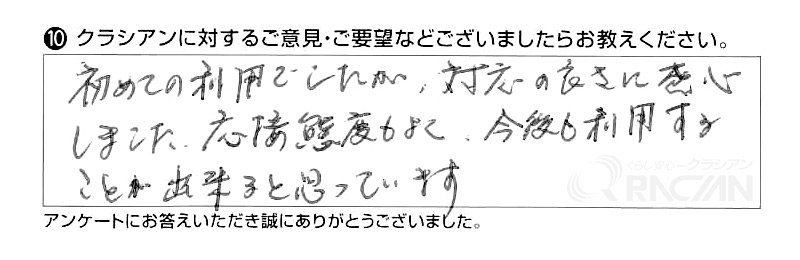 ⑩ クラシアンに対するご意見・ご要望などございましたらお教えください。
初めての利用でしたが、対応の良さに感心
しました、応接態度もよく、今後も利用する
ことが出来ると思っています
くらし安心クラシアン
QRACIAN
アンケートにお答えいただき誠にありがとうございました。